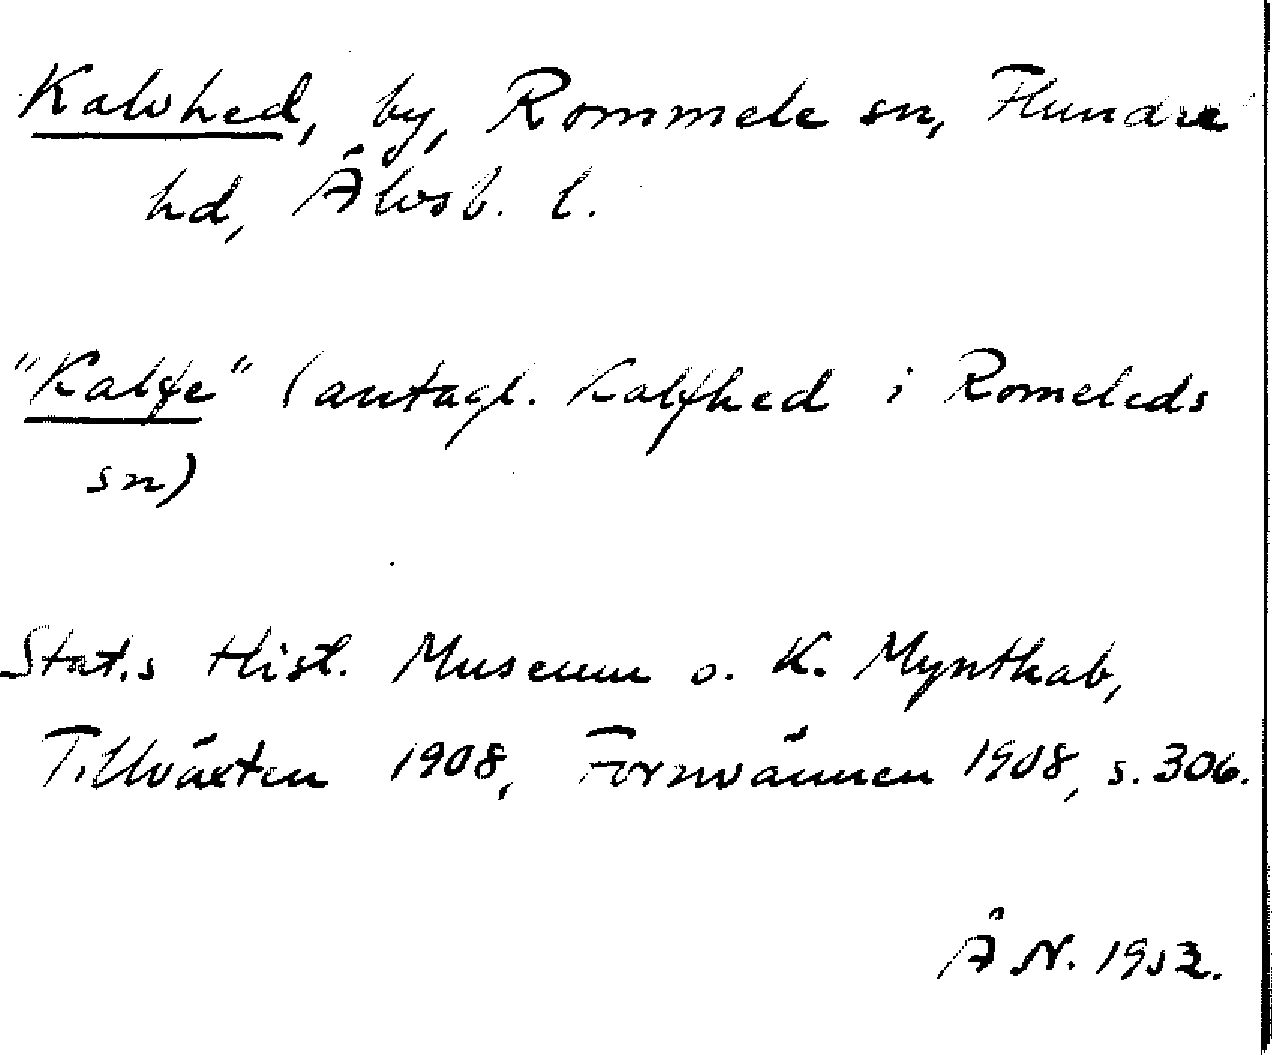 Kalvhed, by, Rommele sn, Flundre
hd, Älvsb. l.
"Kalfe" (antagl. Kalfhed i Romeleds
sn)
Stat.s Hist. Museum o. K. Myntkab,
Tillväxten 1908, Fornvännen 1908, s. 306.
ÅN. 1952.